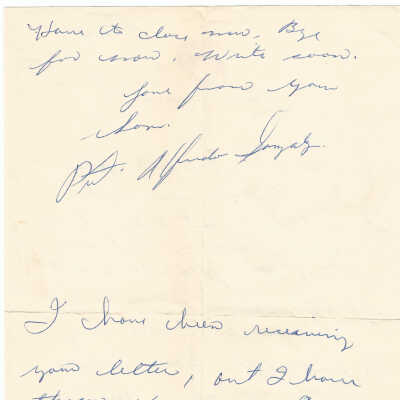 Have to close now. Bye
for now. Write soon.
Love from your
Son.
Pvt. Alfredo Gonzalez.
I have been receiving
your letter, out I have